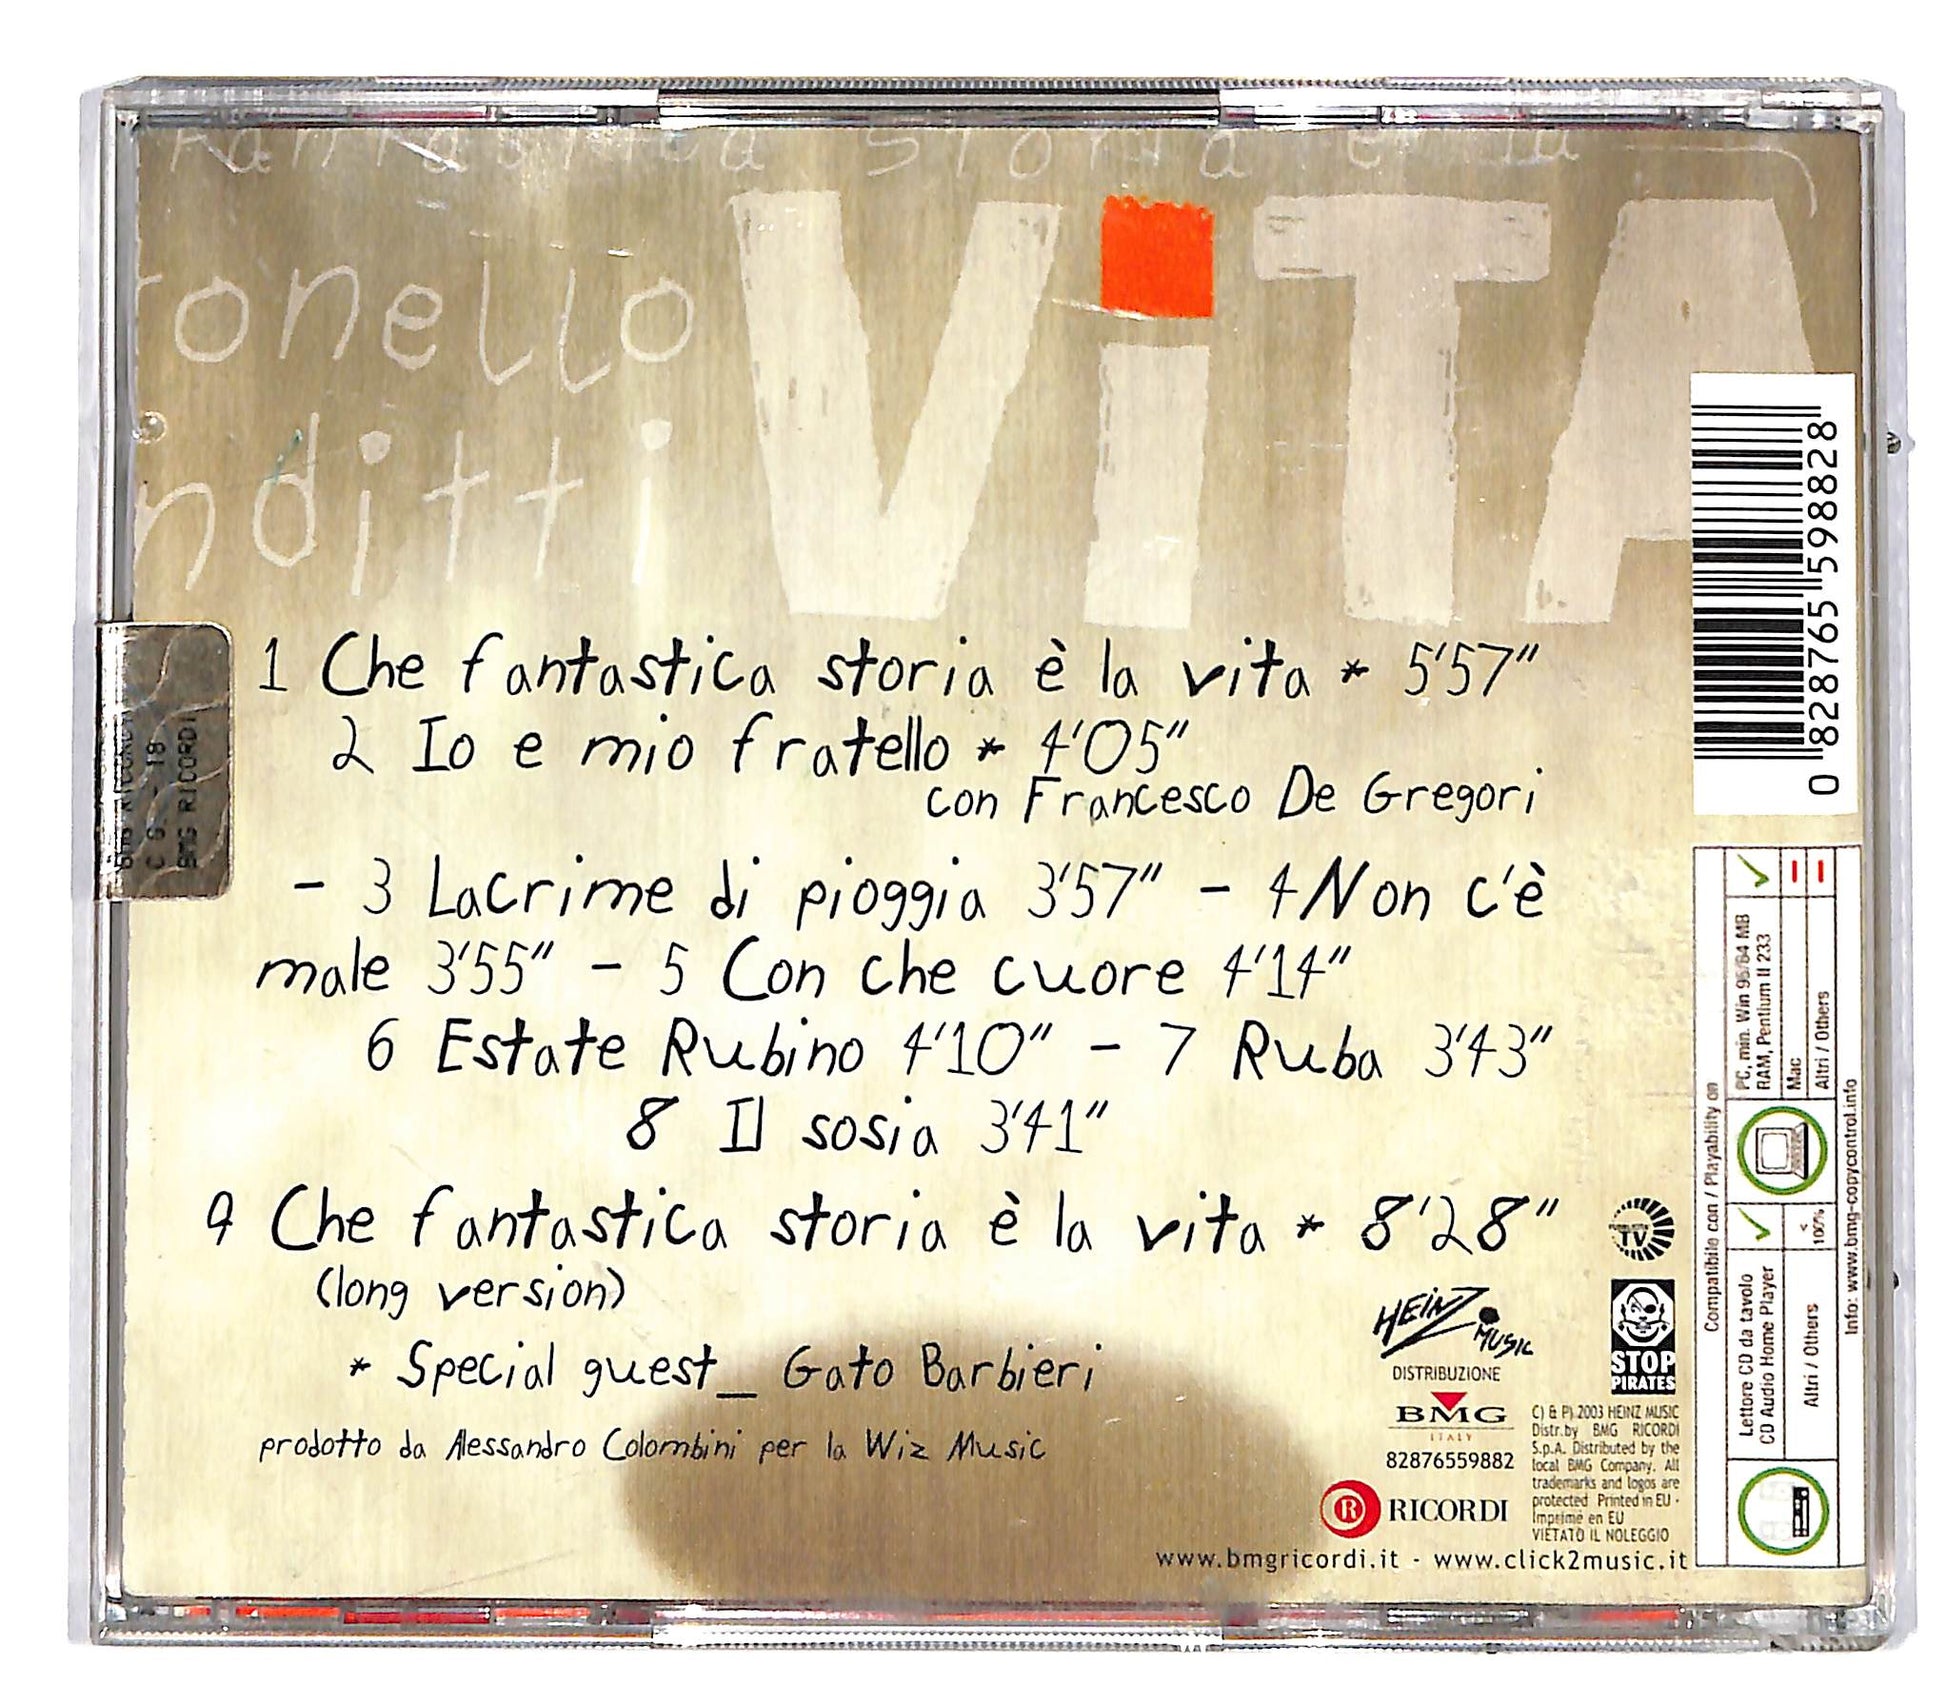 fantastica storia è la
onello
nditti
ViTA
1 Che fantastica storia è la vita * 5'57"
2 Io e mio fratello * 4'05"
con Francesco De Gregori
- 3 Lacrime di pioggia 3'57" - 4 Non c'è
male 3'55" - 5 Con che cuore 4'14"
6 Estate Rubino 4'10" - 7 Ruba 3'43"
8 Il sosia 3'41"
9 Che fantastica storia è la vita * 8'28"
(long version)
* Special guest_ Gato Barbieri
prodotto da Alessandro Colombini per la Wiz Music
BMG RICORDI
BMG RICORDI
HEINZ MUSIC
DISTRIBUZIONE
BMG
ITALY
82876559882
RICORDI
www.bmgricordi.it - www.click2music.it
TV
STOP
PIRATES
C) & P) 2003 HEINZ MUSIC
Distr.by BMG RICORDI
S.p.A. Distributed by the
local BMG Company. All
trademarks and logos are
protected Printed in EU -
Imprimé en EU
VIETATO IL NOLEGGIO
0 828765 598828
Compatibile con / Playability on
Lettore CD da tavolo
CD Audio Home Player
Altri / Others
< 100%
PC, min. Win 95/64 MB
RAM, Pentium II 233
Mac
Altri / Others
Info: www.bmg-copycontrol.info